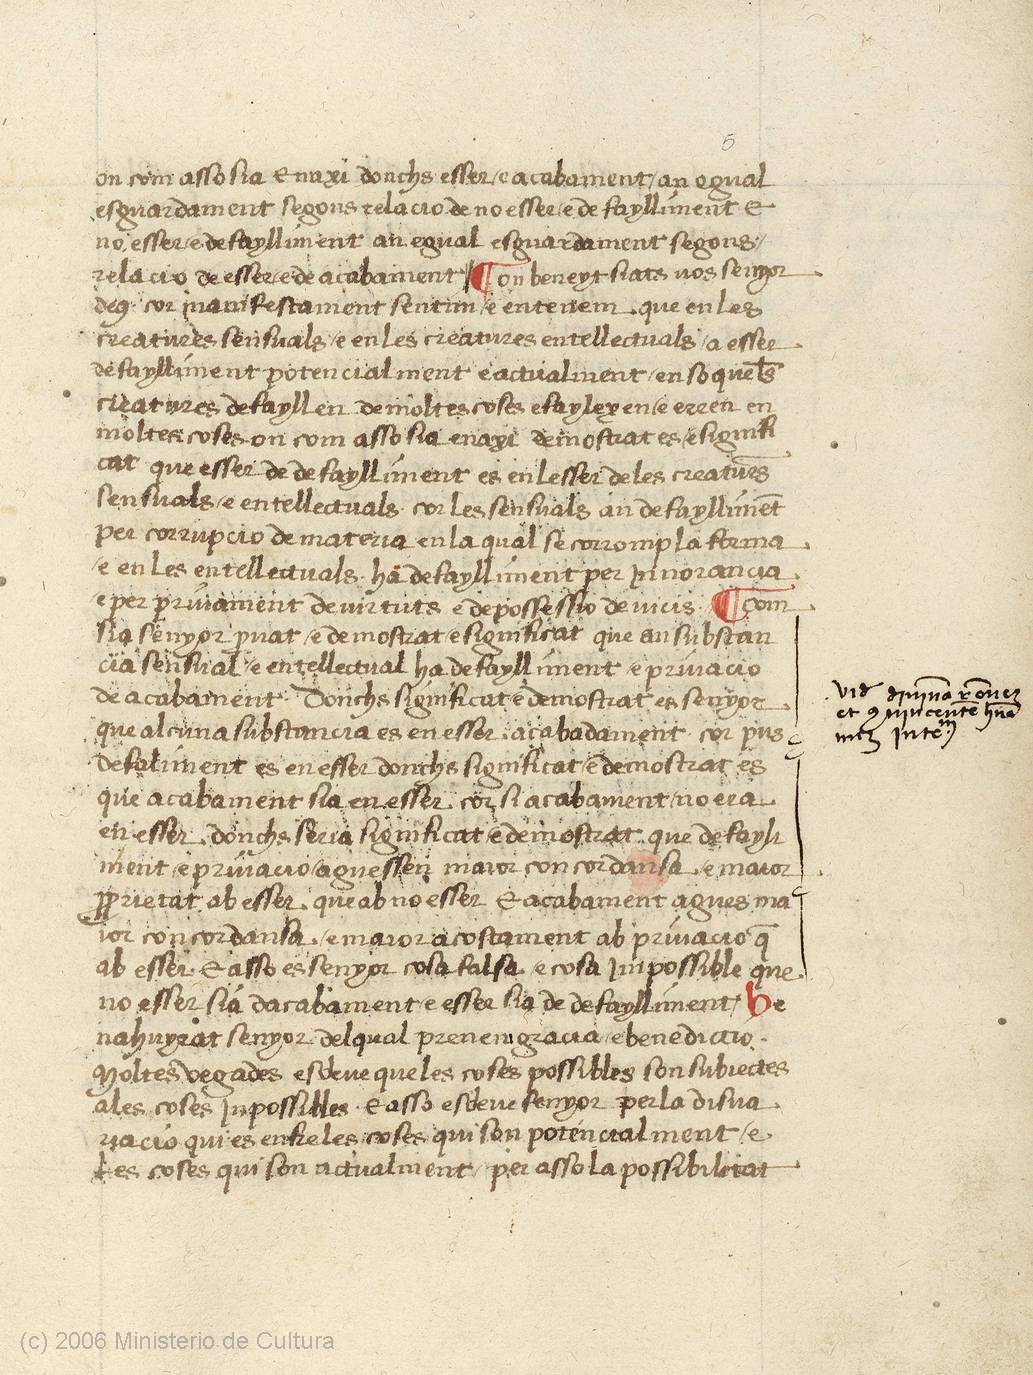 5
on com asso sia enaxi donchs esser e acabament an egual
esguardament segons relacio de no esser e de fayllíment &
no esser e de fayllíment an egual esguardament segons
relacio de esser e de acabament ¶ On beneyt siats vos senyor
deus cor manifestament sentim e entenem que en les
creatures sensuals e en les creatures entellectuals a esser
de fayllíment potencialment e actualment en so que les
creatures defayllen de moltes coses e faylexen e erren en
moltes coses on com asso sia enaxi demostrat es e signifi
cat que esser de defayllíment es en lesser de les creatures
sensuals e entellectuals cor les sensuals an defayllíment
per corrupcio de materia en la qual se corromp la forma
e en les entellectuals ha defayllíment per Innorancia
e per priuament de virtuts e de possessio de vicis ¶ Com
sia senyor prouat e demostrat e significat que en substan
cia sensual e entellectual ha defayllíment e priuacio
de acabament Donchs significat e demostrat es senyor
que alcuna substancia es en esser acabadament cor pus
defalíment es en esser donchs significat e demostrat es
que acabament sia en esser cor si acabament no era
en esser donchs seria significat e demostrat que defaylí
ment e priuacio aguessen maior concordansa e maior
proprietat ab esser que ab no esser & acabament agues ma
ior concordansa e maior acostament ab priuacio que
ab esser & asso es senyor cosa falsa e cosa Impossible que
no esser sia dacabament e esser sia de defayllíment he
nahuyrat senyor del qual prenem gracia e benediccio
Moltes vegades esdeue que les coses possibles son subiectes
a les coses inpossibles & asso esdeue senyor per la disua
riacio qui es enfre les coses qui son potencialment e
les coses qui son actualment per asso la possibilitat
(c) 2006 Ministerio de Cultura